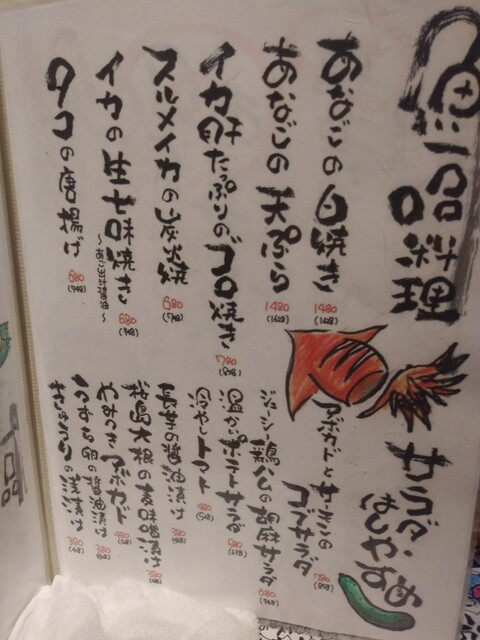 魚一品料理
あなごの白焼き 1480
あなごの天ぷら 1480
イカ肝たっぷりのゴロ焼き 780
スルメイカの炭火焼 680 (748)
イカの生七味焼き 680 (748)
〜あご出汁醤油〜
タコの唐揚げ 680 (748)
サラダ・はしやすめ
アボカドとサーモンの
ゴマサラダ 780 (858)
ジューシー鶏ハムの胡麻サラダ 680 (748)
温かいポテトサラダ
冷やしトマト
野菜の醤油漬け 380
大根の味噌漬け 380
やみつきアボカド 480
うずら卵の醤油漬け 380
きゅうりの浅漬け 380